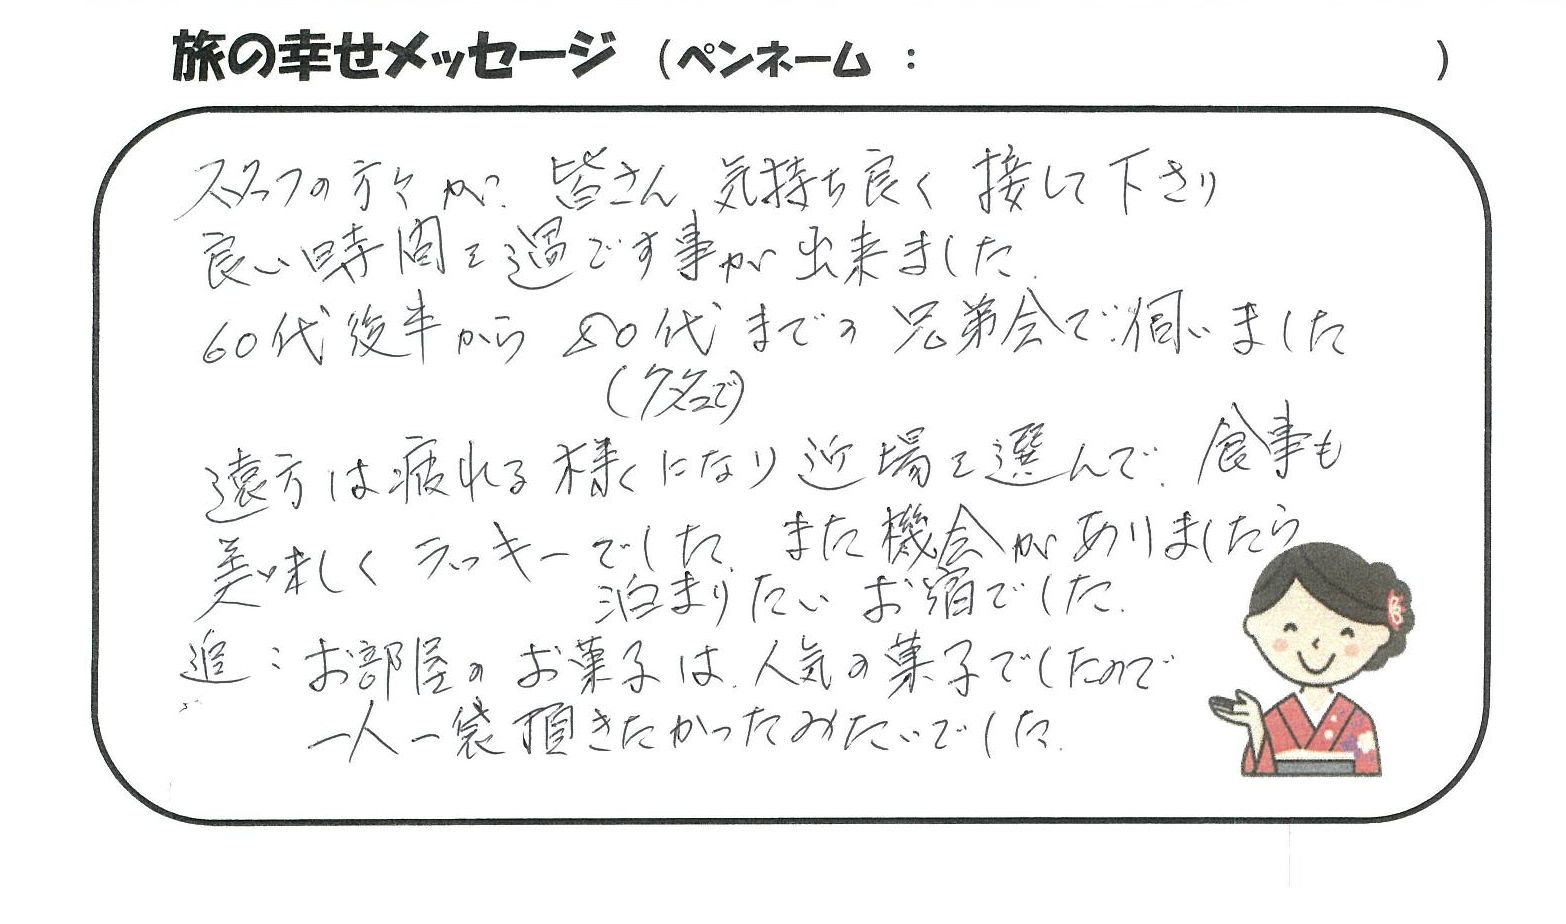 旅の幸せメッセージ (ペンネーム : )
スタッフの方々が、皆さん 気持ち良く 接して下さり
良い時間を過ごす事が出来ました。
60代後半から 80代までの 兄弟会で伺いました
(7名で)
遠方は疲れる様になり近場を選んで、食事も
美味しく ラッキーでした。また機会がありましたら
泊まりたい お宿でした。
追：お部屋のお菓子は、人気の菓子でしたので
一人一袋頂きたかったみたいでした。